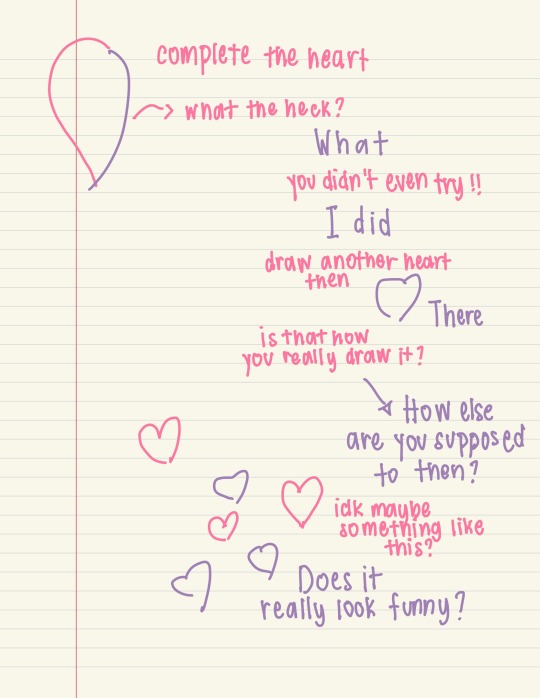 complete the heart
what the heck?
What
you didn't even try!!
I did
draw another heart
then
There
is that how
you really draw it?
How else
are you supposed
to then?
idk maybe
something like
this?
Does it
really look funny?